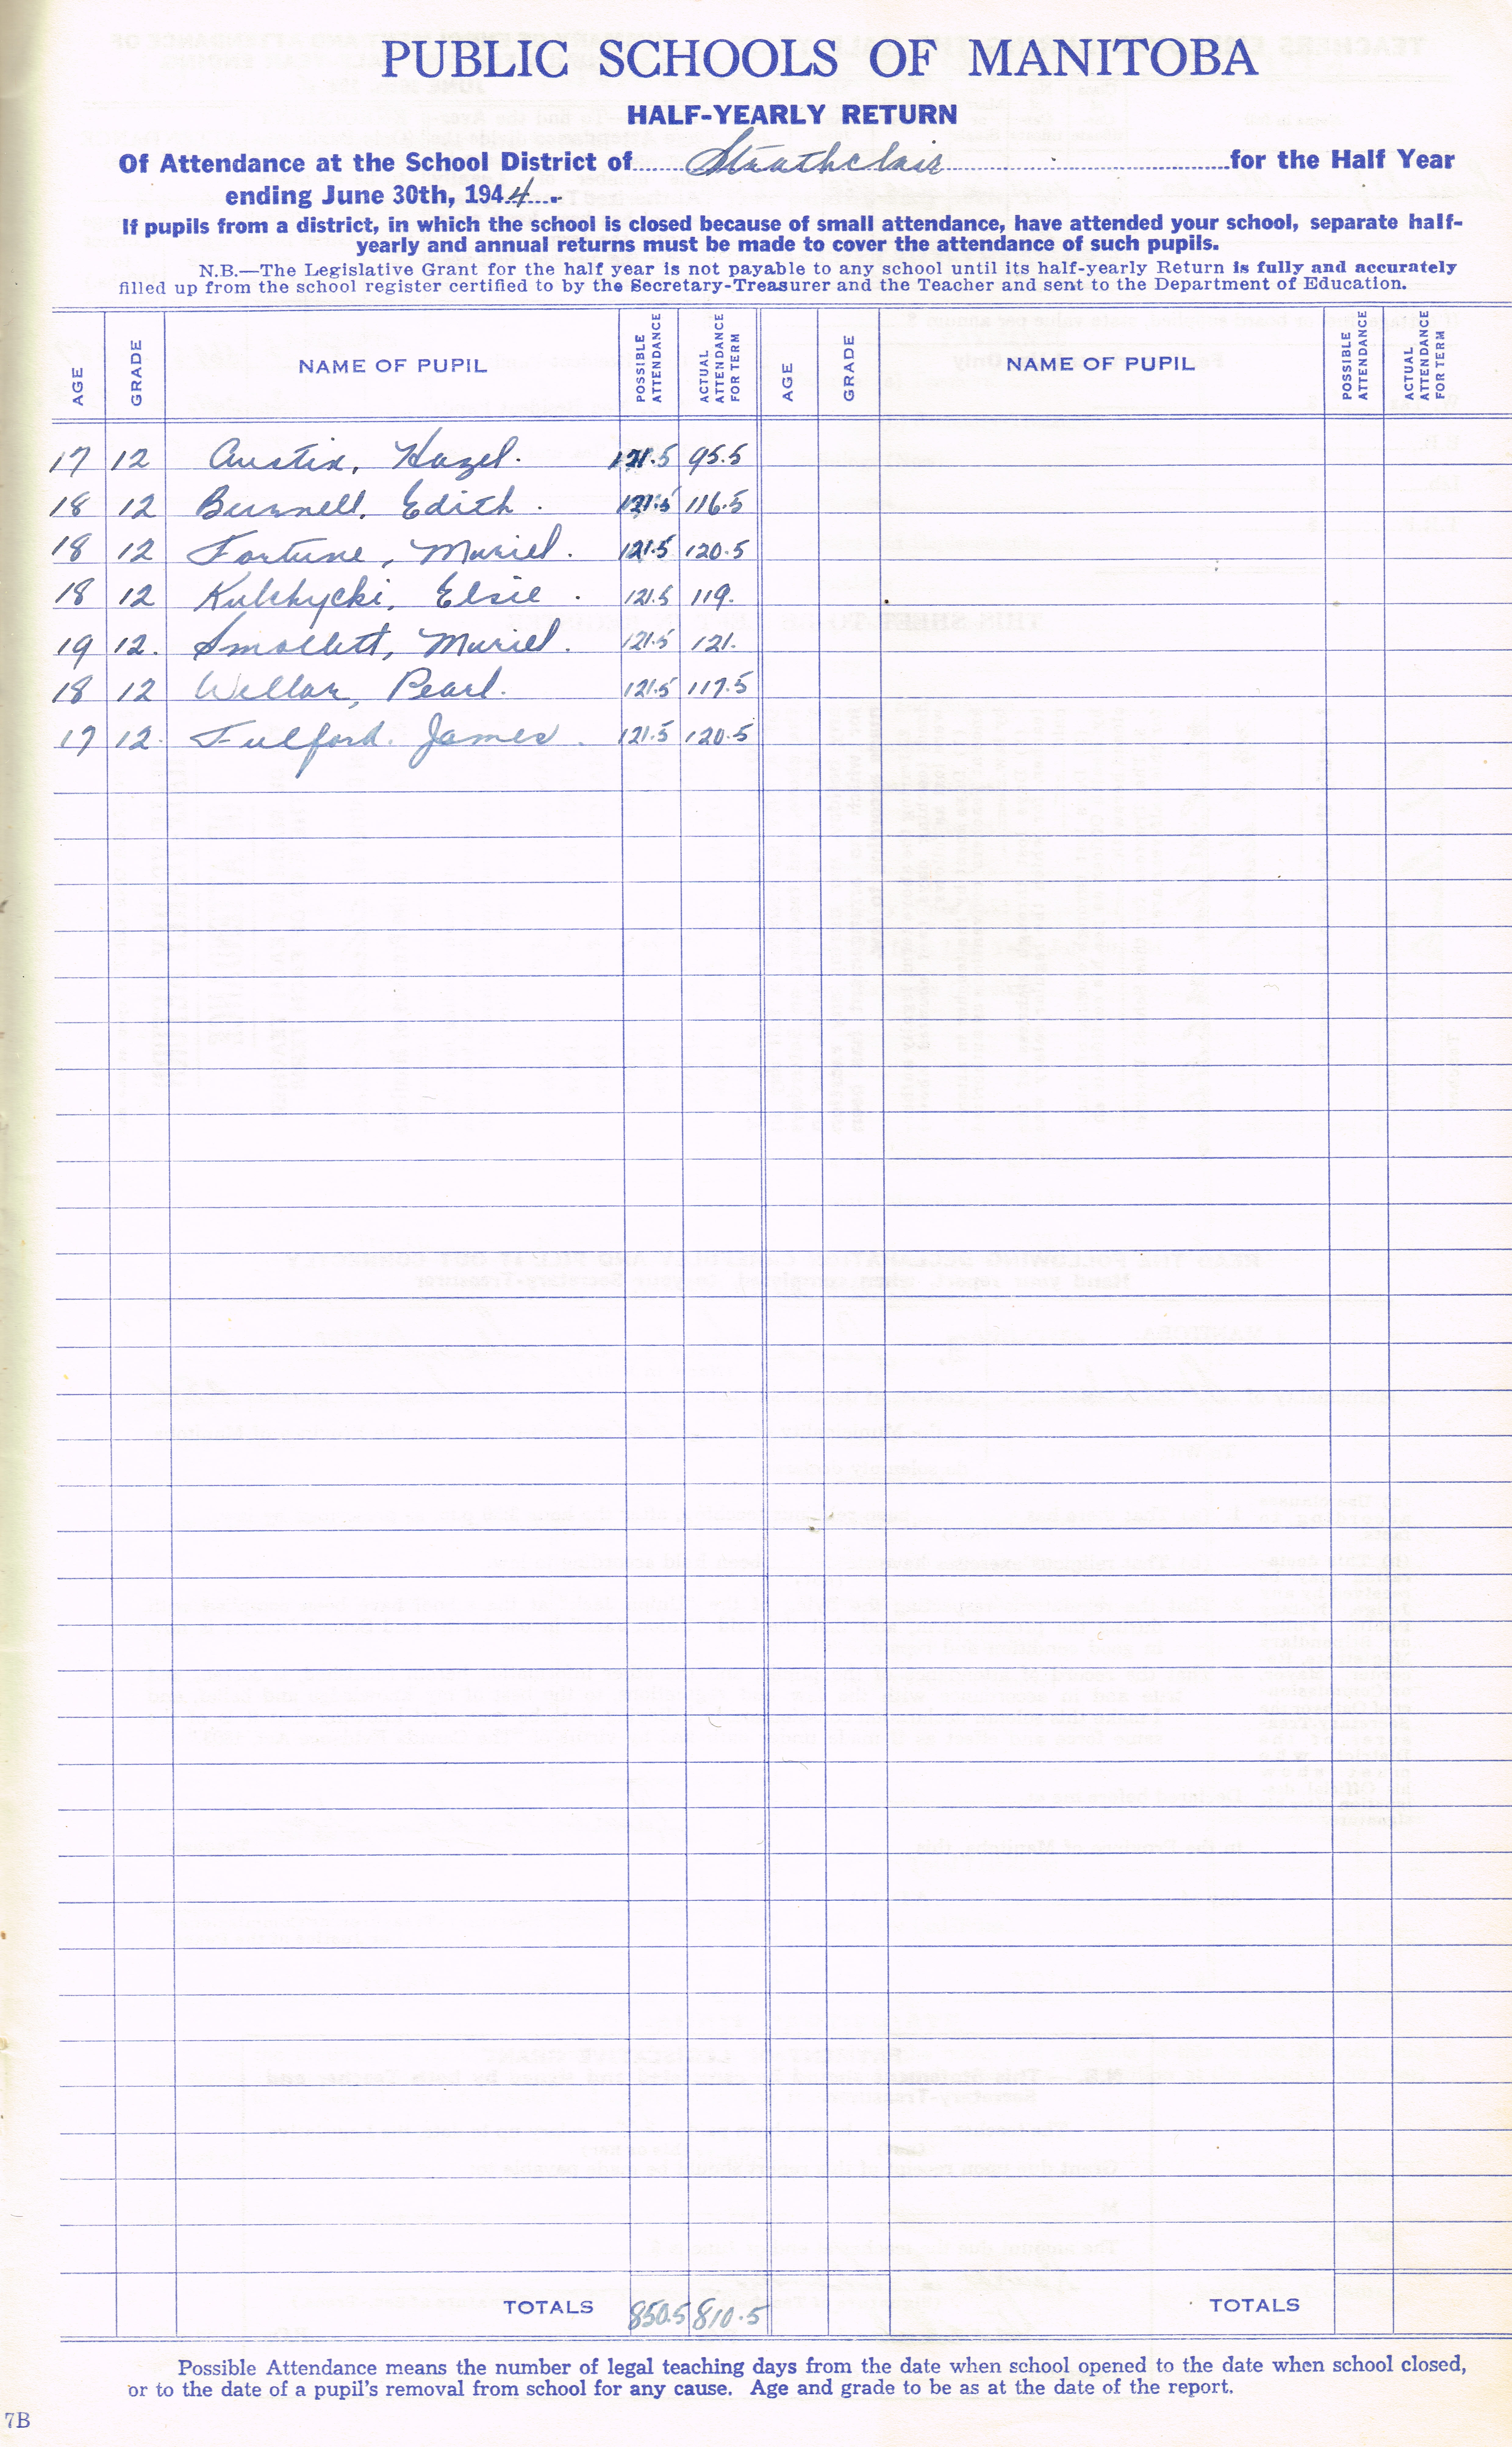 PUBLIC SCHOOLS OF MANITOBA
HALF-YEARLY RETURN
Of Attendance at the School District of Strathclair for the Half Year
ending June 30th, 1944.
If pupils from a district, in which the school is closed because of small attendance, have attended your school, separate half-
yearly and annual returns must be made to cover the attendance of such pupils.
N.B.—The Legislative Grant for the half year is not payable to any school until its half-yearly Return is fully and accurately
filled up from the school register certified to by the Secretary-Treasurer and the Teacher and sent to the Department of Education.
AGE GRADE NAME OF PUPIL POSSIBLE ATTENDANCE ACTUAL ATTENDANCE FOR TERM AGE GRADE NAME OF PUPIL POSSIBLE ATTENDANCE ACTUAL ATTENDANCE FOR TERM
17 12 Austin, Hazel. 121.5 95.5
18 12 Burnell, Edith. 121.5 116.5
18 12 Fortune, Muriel. 121.5 120.5
18 12 Kulchycki, Elsie. 121.5 119.
19 12. Smollett, Muriel. 121.5 121.
18 12 Wellar, Pearl. 121.5 117.5
17 12. Fulford. James. 121.5 120.5
TOTALS 850.5 810.5 TOTALS
Possible Attendance means the number of legal teaching days from the date when school opened to the date when school closed,
or to the date of a pupil's removal from school for any cause. Age and grade to be as at the date of the report.
7B